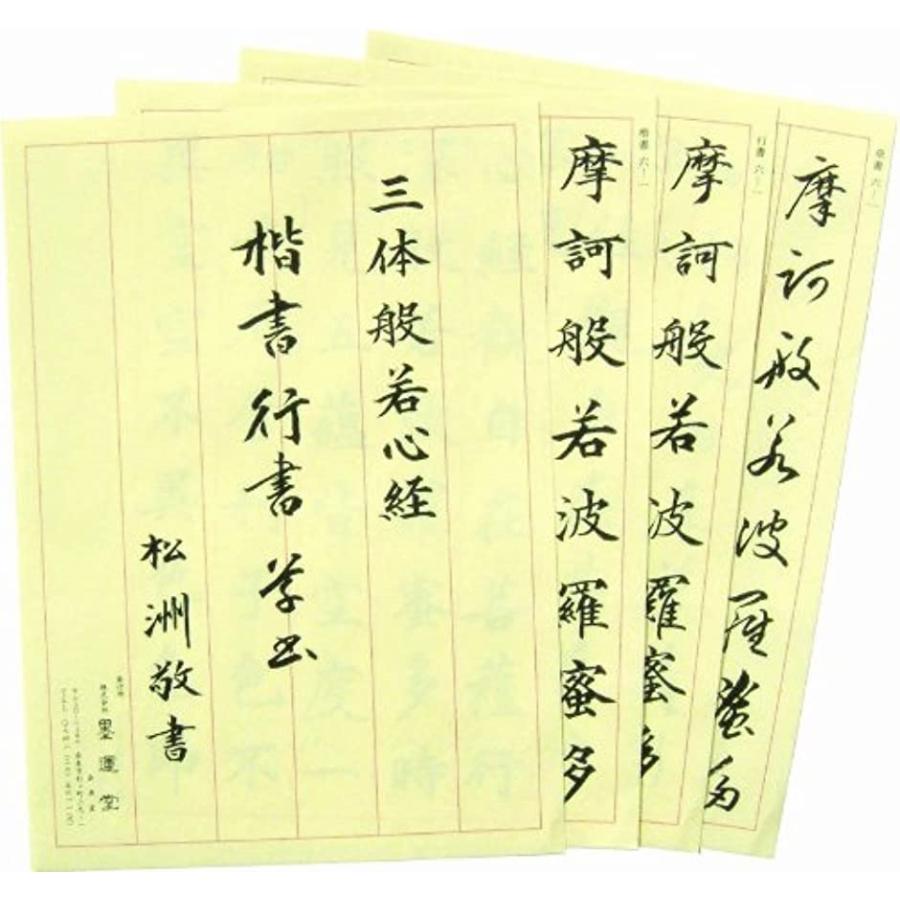 三体般若心経
楷書行書草書
松洲敬書
発行所
株式会社 墨運堂
楷書 六ー一
摩訶般若波羅蜜多
行書 六ー一
摩訶般若波羅蜜多
草書 六ー一
摩訶般若波羅蜜多